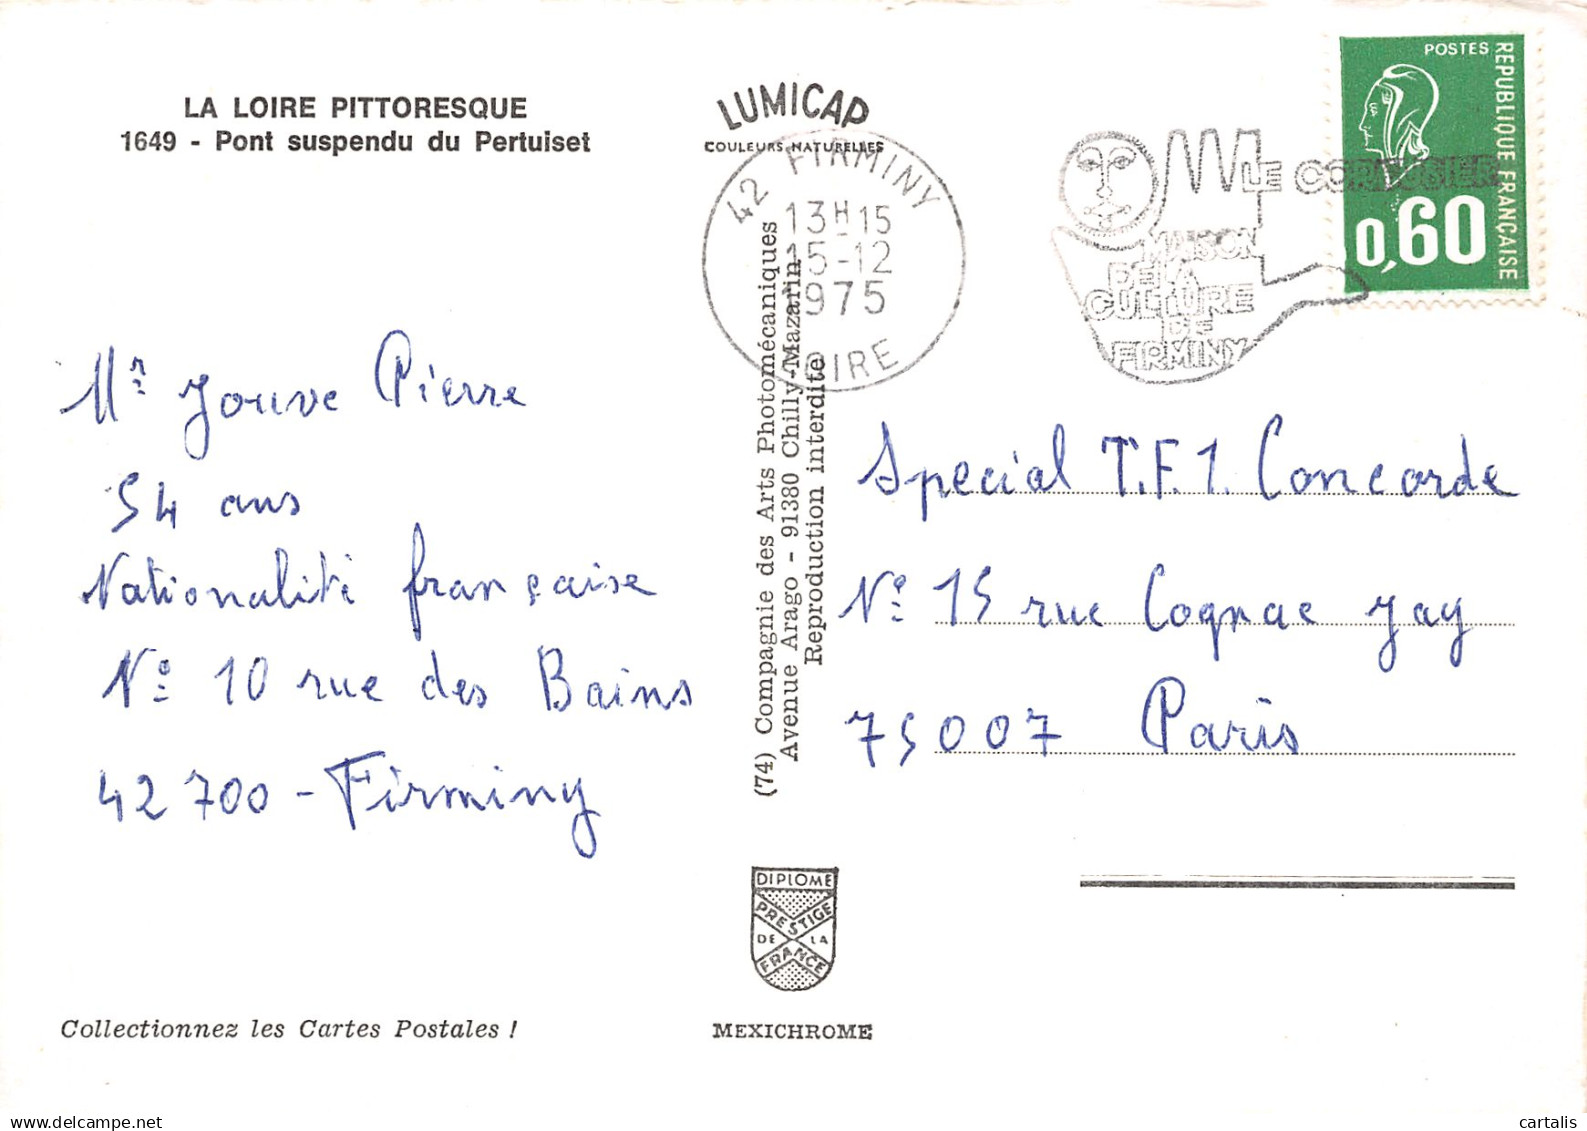 LA LOIRE PITTORESQUE
1649 - Pont suspendu du Pertuiset
LUMICAP
COULEURS NATURELLES
42 FIRMINY
13H15
15-12
1975
LOIRE
LE CORBUSIER
MAISON
DE LA
CULTURE
DE
FIRMINY
POSTES
REPUBLIQUE FRANÇAISE
0,60
Mr Jouve Pierre
54 ans
Nationalité française
No 10 rue des Bains
42 700 - Firminy
(74) Compagnie des Arts Photomécaniques
Avenue Arago - 91380 Chilly-Mazarin
Reproduction interdite
Special T.F.1. Concorde
No 15 rue Cognac Jay
75007 Paris
DIPLOME
PRESTIGE
DE LA
FRANCE
Collectionnez les Cartes Postales !
MEXICHROME
delcampe.net
cartalis